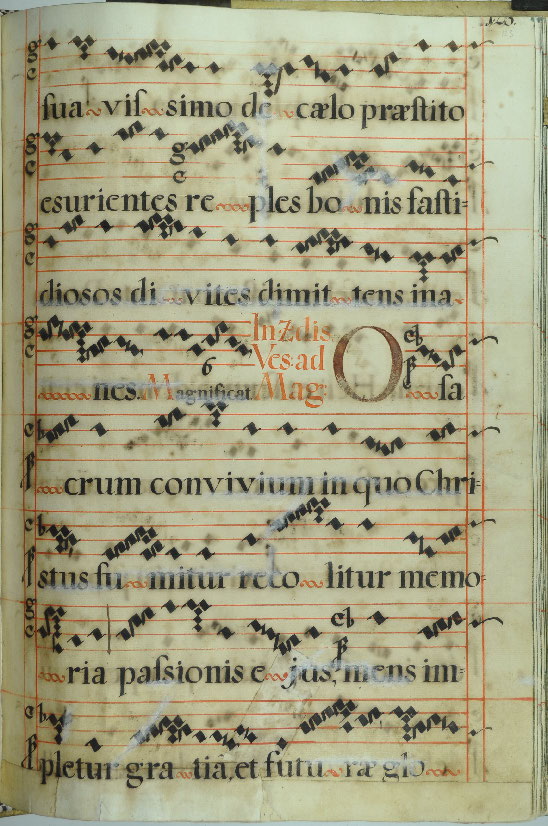 sua visſ simo de cælo præſtito
esurientes re ples bo nis faſti=
diosos di vites dimit tens ina
nes. Magnificat. 6 In 2.dis Ves. ad Mag. O sa
crum convivium in quo Chri=
stus su mitur reco litur memo=
ria paſsionis e jus, mens im=
pletur gra tia, et futu ræ glo